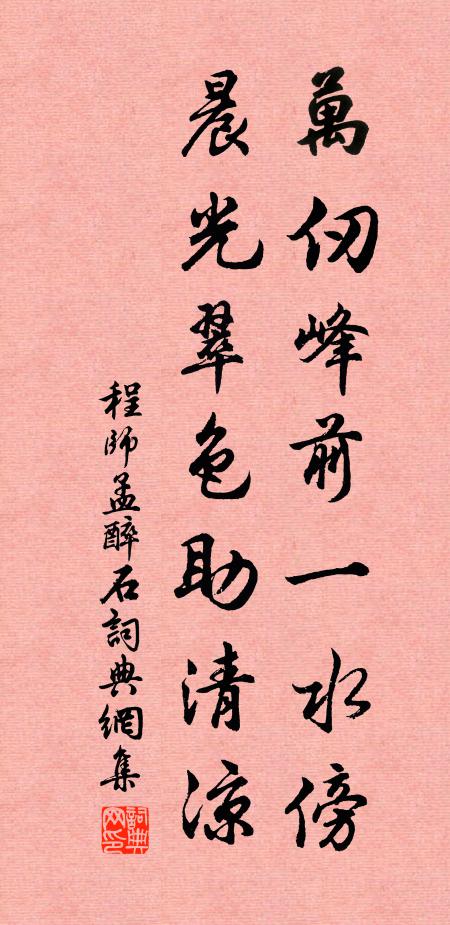 萬仞峰前一水傍
晨光翠色助清涼
程師孟醉石詞典網集
詞典网印